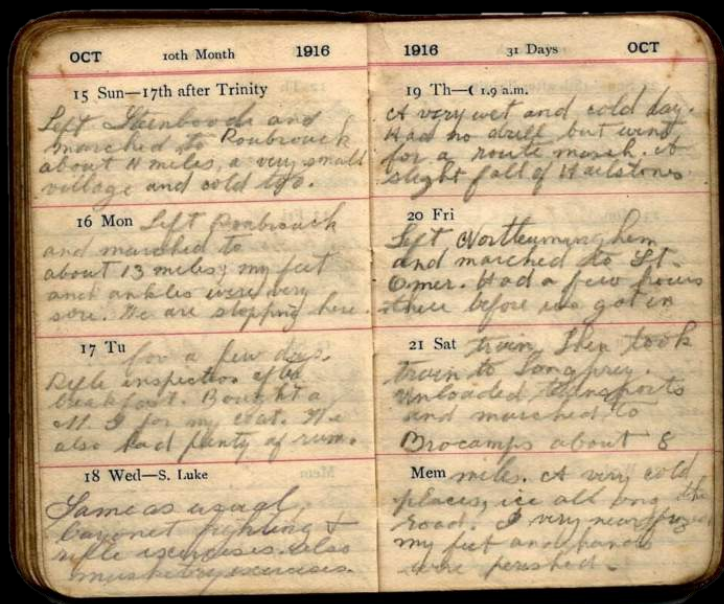 OCT 10th Month 1916
15 Sun—17th after Trinity
Left Steenboode and
marched to Roubrouck
about 11 miles, a very small
village and cold too.
16 Mon Left Roubrouck
and marched to
about 13 miles; my feet
and ankles were very
sore. We are stopping here
17 Tu for a few days.
Rifle inspection after
breakfast. Bought a
for my coat. We
also had plenty of rum.
18 Wed—S. Luke
Same as usual
bayonet fighting &
rifle exercises also
musketry exercises.
1916 31 Days OCT
19 Th—☾ 1.9 a.m.
A very wet and cold day.
Had no drill but went
for a route march. A
slight fall of Hailstones
20 Fri
Left
and marched to St.
Omer. Had a few hours
there before we got in
21 Sat train, then took
train to Longprey.
Unloaded transports
and marched to
Brocamps about 8
Mem miles. A very cold
places, ice all ong the
road. I very near froze
my feet and hands
were perished.